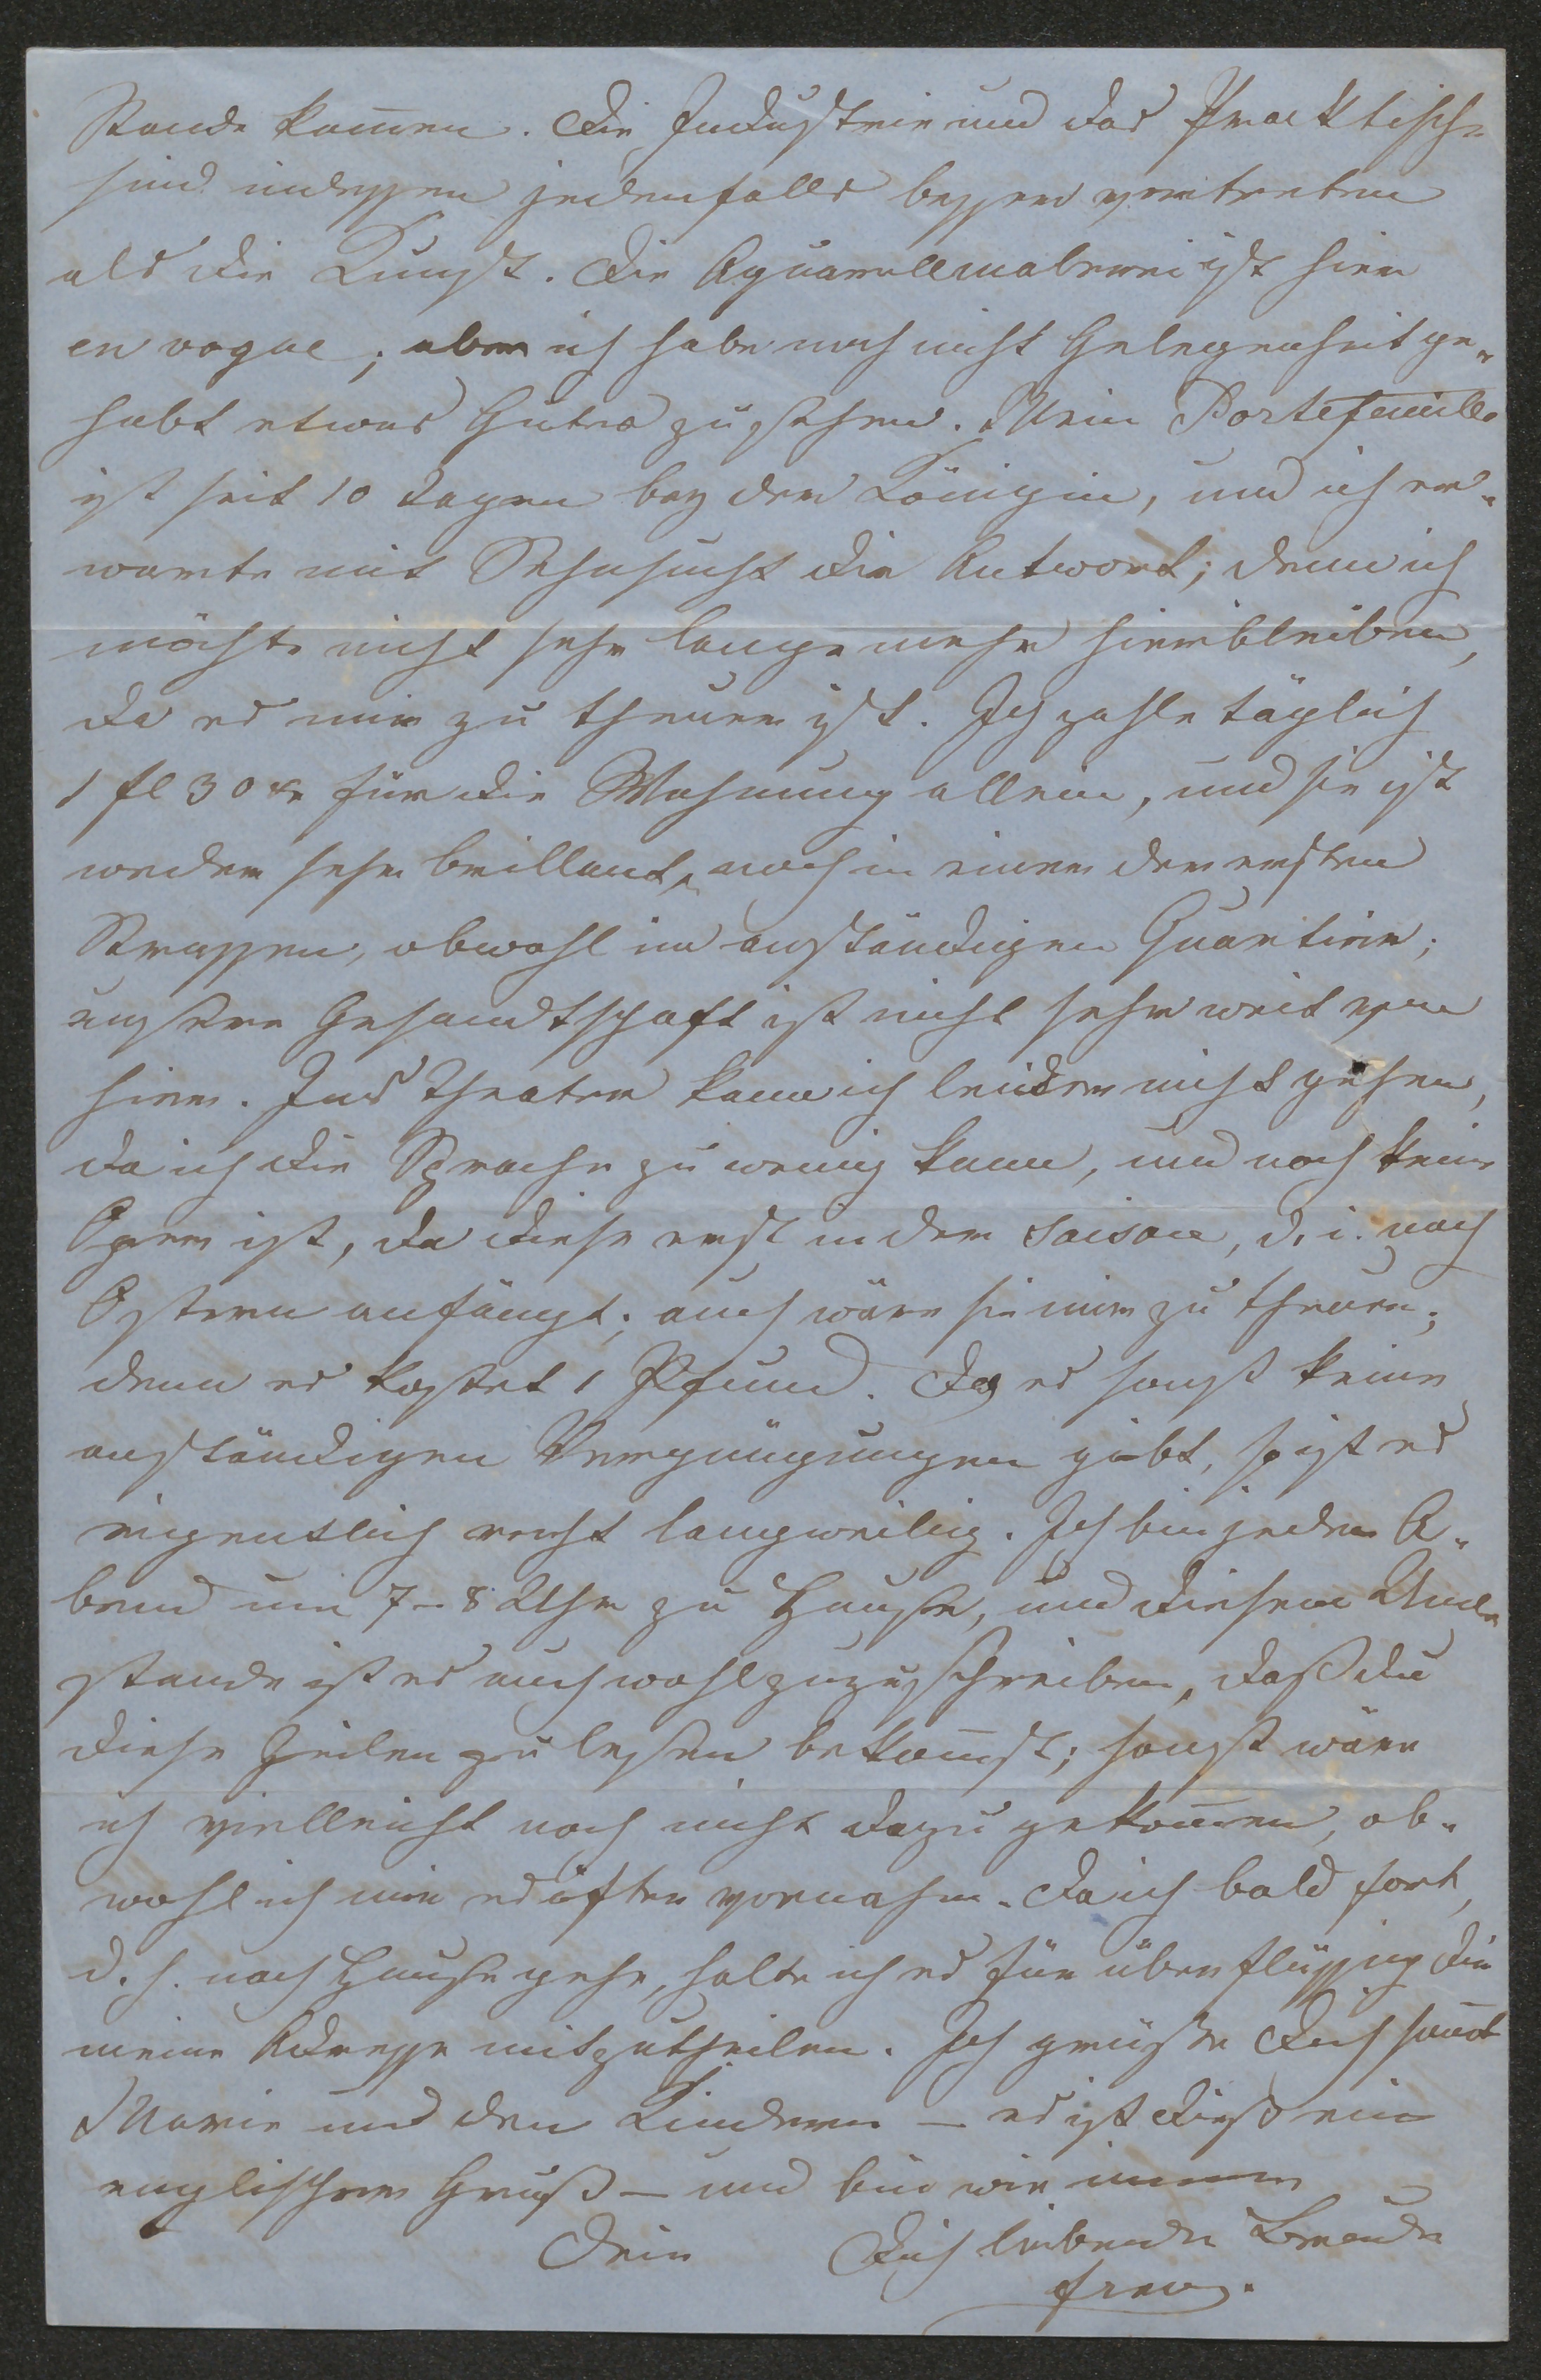 Stande kom̄en. Die Industrie und das Praktische
sind indessen jedenfalls besser vertreten
als die Kunst. Die Aquarellmalerei ist hier
en vogue; aber ich habe noch nicht Gelegenheit ge-
habt etwas Gutes zu sehen. Mein Portefeuille
ist seit 10 Tagen bey der Königin, und ich er-
warte mit Sehnsucht die Antwort; denn ich
möchte nicht sehr lange mehr hierbleiben,
da es mir zu theuer ist. Ich zahle täglich
1 fl 30 xr für die Wohnung allein, und sie ist
weder sehr brillant, noch in einer der ersten
Strassen, obwohl im anständigen Quartier;
unsere Gesandtschaft ist nicht sehr weit von
hier. Ins Theater kann ich leider nicht gehen,
da ich die Sprache zu wenig kann, und noch keine
Oper ist, da diese erst in der Saison, d. i. nach
Ostern anfängt; auch wäre sie mir zu theuer;
denn es kostet 1 Pfund. Da es sonst keine
anständigen Vergnügungen gibt, so ist es
eigentlich recht langweilig. Ich bin jeden A-
bend um 7–8 Uhr zu Hause, und diesem Um-
stande ist es auch wohl zuzuschreiben, daß du
diese Zeilen zu lesen bekom̄st; sonst wäre
ich vielleicht noch nicht dazu gekom̄en, ob-
wohl ich mir es öfter vornahm. Da ich bald fort,
d. h. nach Hause gehe, halte ich es für überflüssig dir
meine Adresse mitzutheilen. Ich grüße Dich sam̄t
Marie und den Kindern – es ist dieß ein
englischer Gruß – und bin wie immer
Dein Dich liebender Bruder